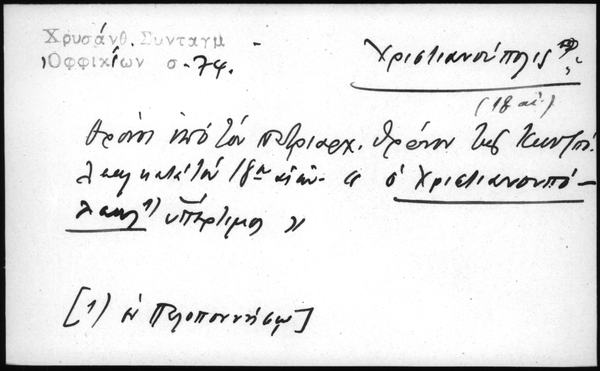 Χρυσάνθ. Συνταγμ
Ὀφφικίων σ. 74.
Χριστιανούπολις
(18 αἰ.)
Θρόνοι ὑπό τόν πατριαρχ. θρόνον τῆς Κωνπό-
λεως κατά τόν 18ον αἰῶν. « ὁ Χριστιανουπό-
λεως 1) ὑπέρτιμος »
[1) ἐν Πελοποννήσῳ]